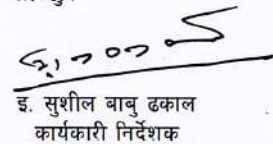 इ. सुशील बाबु ढकाल
कार्यकारी निर्देशक